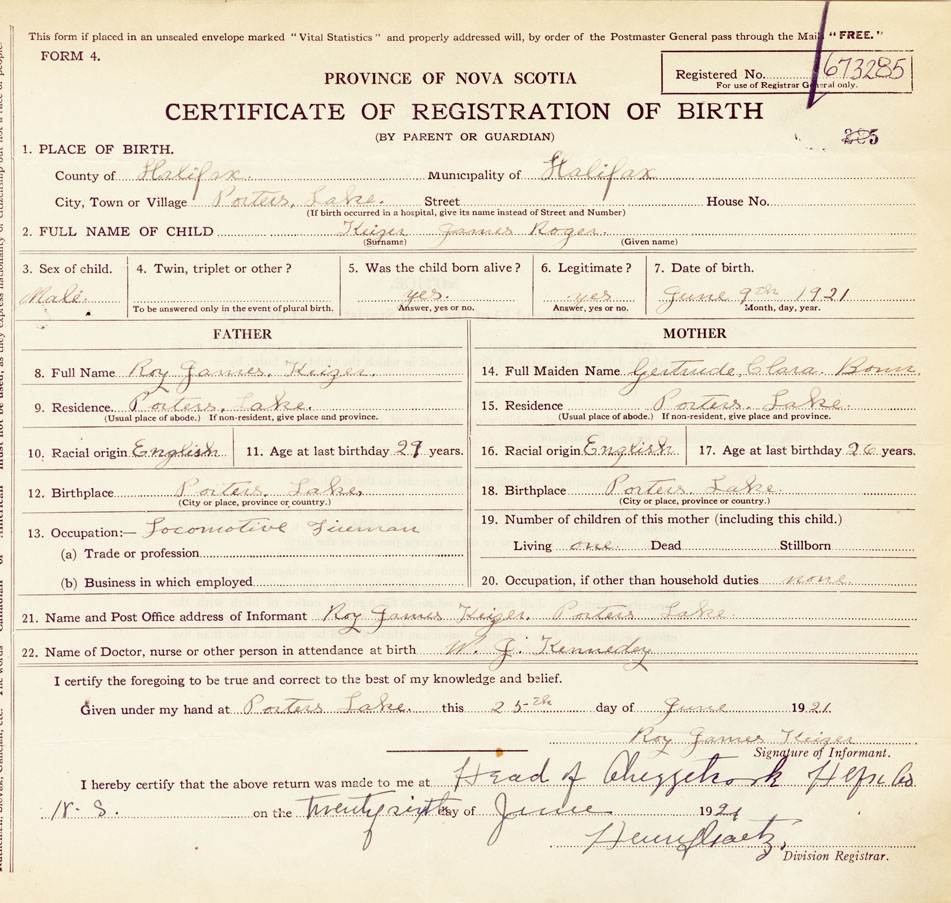 This form if placed in an unsealed envelope marked "Vital Statistics" and properly addressed will, by order of the Postmaster General pass through the Mail "FREE."
FORM 4.
PROVINCE OF NOVA SCOTIA
Registered No. 673285
For use of Registrar General only.
CERTIFICATE OF REGISTRATION OF BIRTH
(BY PARENT OR GUARDIAN)
1. PLACE OF BIRTH.
County of Halifax. Municipality of Halifax
City, Town or Village Porters, Lake. Street House No.
(If birth occurred in a hospital, give its name instead of Street and Number)
2. FULL NAME OF CHILD Keizer James Roger.
(Surname) (Given name)
3. Sex of child. 4. Twin, triplet or other? 5. Was the child born alive? 6. Legitimate? 7. Date of birth.
Male. yes. yes June 9th 1921
To be answered only in the event of plural birth. Answer, yes or no. Answer, yes or no. Month, day, year.
FATHER MOTHER
8. Full Name Roy James, Keizer. 14. Full Maiden Name Gertrude, Clara.
9. Residence. Porters, Lake. 15. Residence Porters. Lake.
(Usual place of abode.) If non-resident, give place and province. (Usual place of abode.) If non-resident, give place and province.
10. Racial origin English 11. Age at last birthday years. 16. Racial origin English 17. Age at last birthday 26 years.
12. Birthplace Porters, Lake, 18. Birthplace Porters, Lake.
(City or place, province or country.) (City or place, province or country.)
13. Occupation:— Locomotive Fireman 19. Number of children of this mother (including this child.)
(a) Trade or profession Living one. Dead Stillborn
(b) Business in which employed 20. Occupation, if other than household duties none.
21. Name and Post Office address of Informant Roy James Keizer. Porters Lake.
22. Name of Doctor, nurse or other person in attendance at birth W. J. Kennedey
I certify the foregoing to be true and correct to the best of my knowledge and belief.
Given under my hand at Porters Lake. this 25th day of June 1921.
Roy James Keizer
Signature of Informant.
I hereby certify that the above return was made to me at Head of Chezzetcook Hfx Co
N. S. on the twenty sixth day of June 1921
Division Registrar.